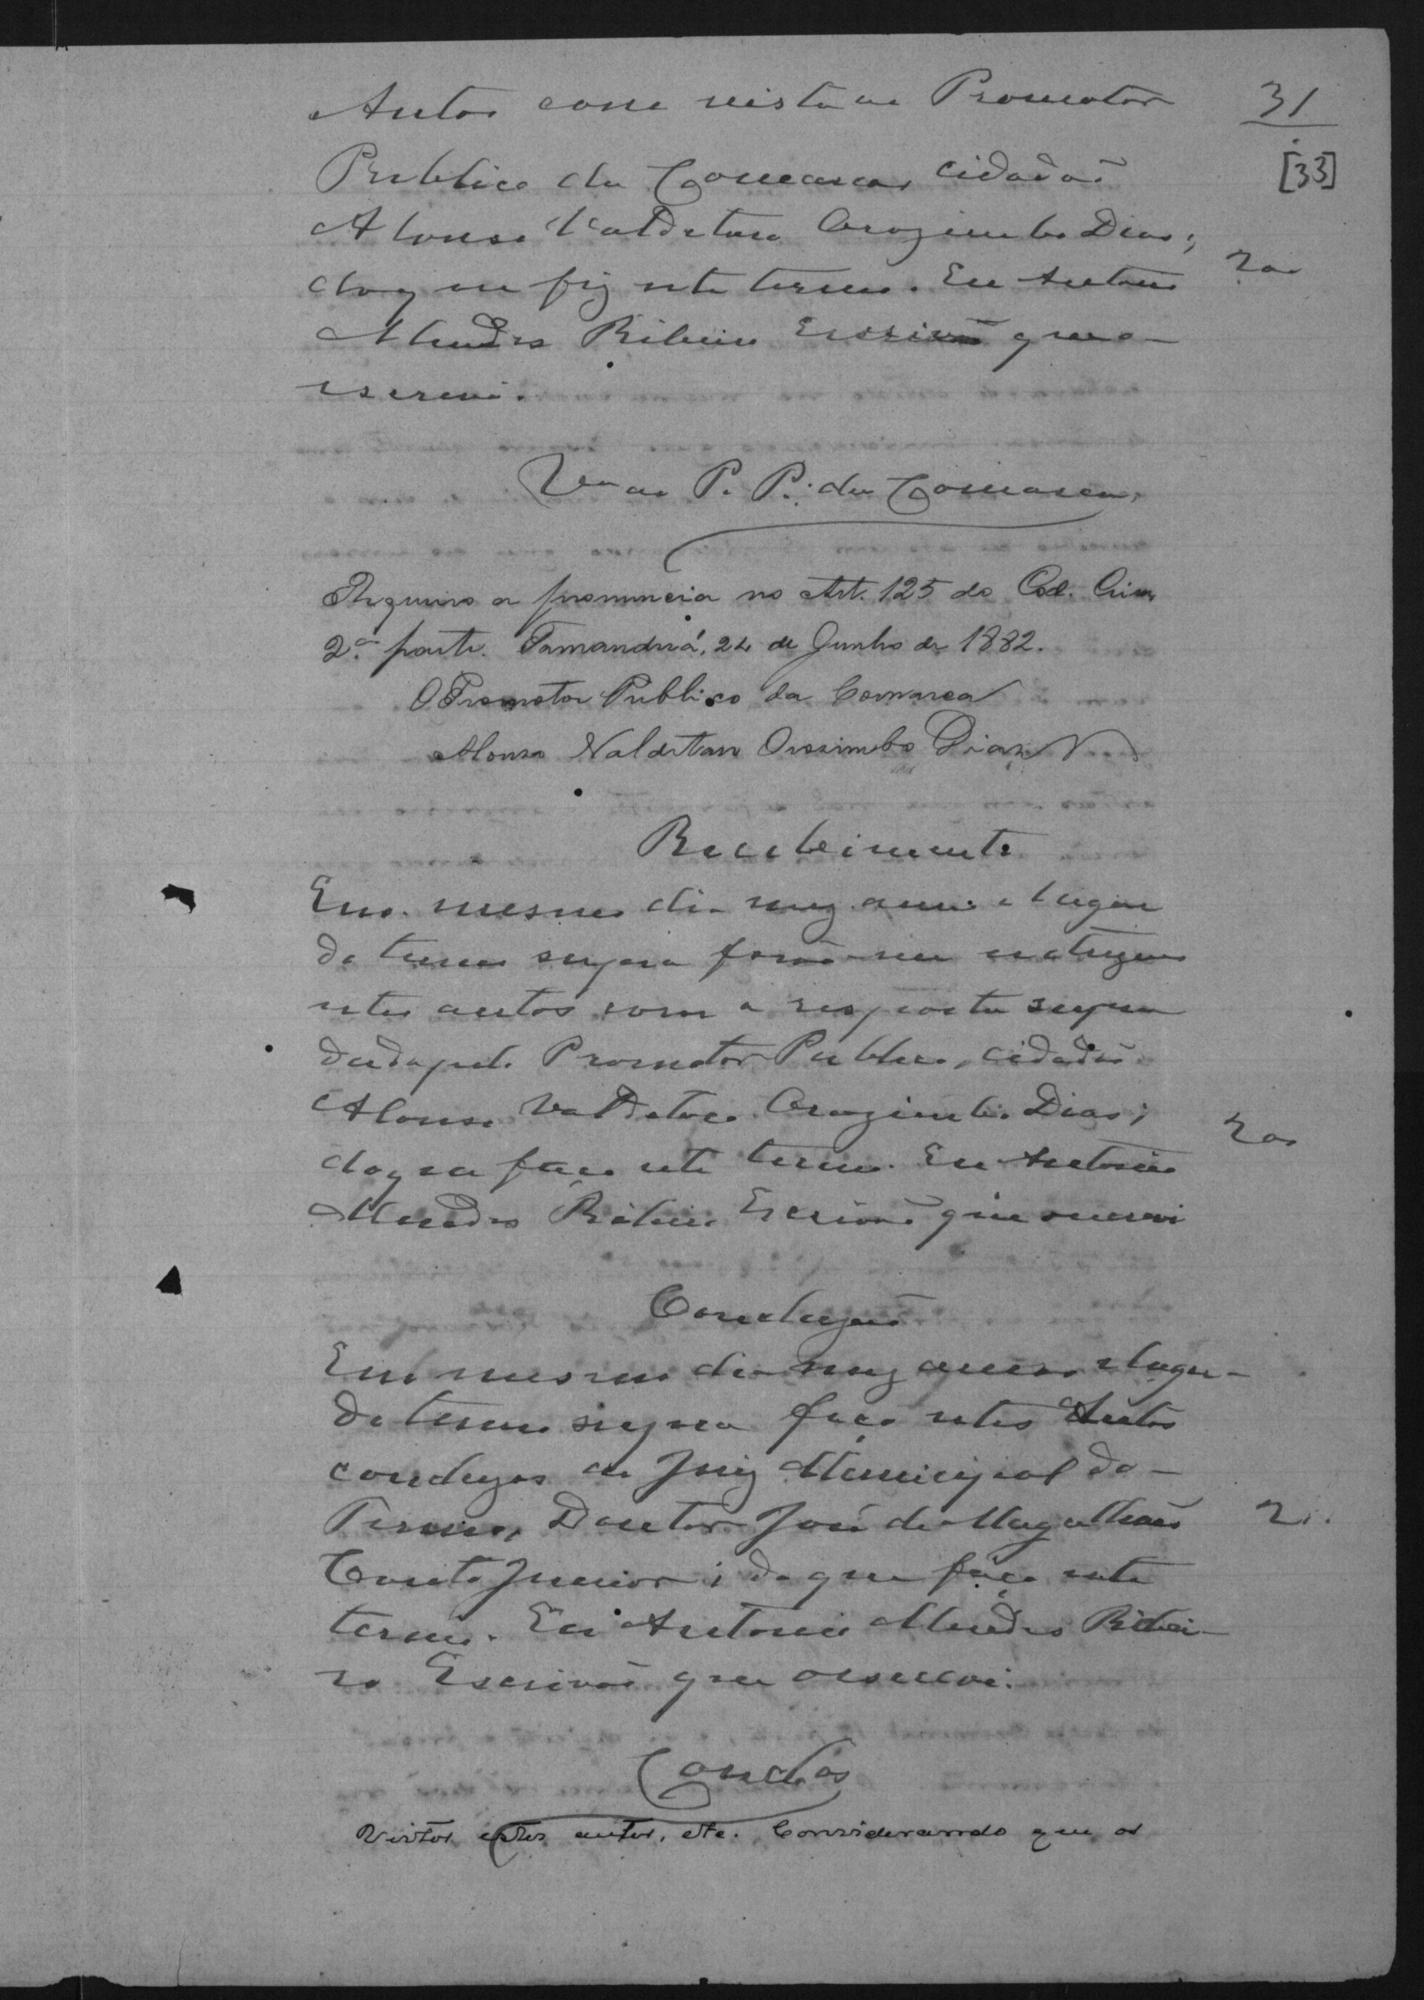 31
[33]
Autos com vista ao Promotor
Publico da Comarca, cidadaõ
Alonso Valdetaro Orozimbo Dias;
do q̃ me fiz este termo. Eu Antonio
Mendes Ribeiro Escrivaõ que o
escrevi.
200
V.ta ao P. P. da Comarca,
Requeiro a pronuncia no Art. 125 do Cod. Crim.
2.ª parte. Tamanduá, 24 de Junho de 1882.
O Promotor Publico da Comarca
Alonso Valdetaro Orosimbo Dias
Recebimento
Em o mesmo dia mez anno e lugar
do termo supra foraõ-me entregues
estes autos com a resposta supra
dada pelo Promotor Publico, cidadaõ
Alonso Valdetaro Orozimbo Dias;
do q̃ faço este termo. Eu Antonio
Mendes Ribeiro Escrivaõ que o escrevi
200
Concluzaõ
Em o mesmo dia mez anno e lugar
do termo supra faço estes Autos
concluzos ao Juiz Municipal do
Termo, Doutor José de Magalhaẽs
Couto Junior; do que faço este
termo. Eu Antonio Mendes Ribei-
ro Escrivaõ que o escrevi.
Concl.os
Vistos estes autos, etc. Considerando que os